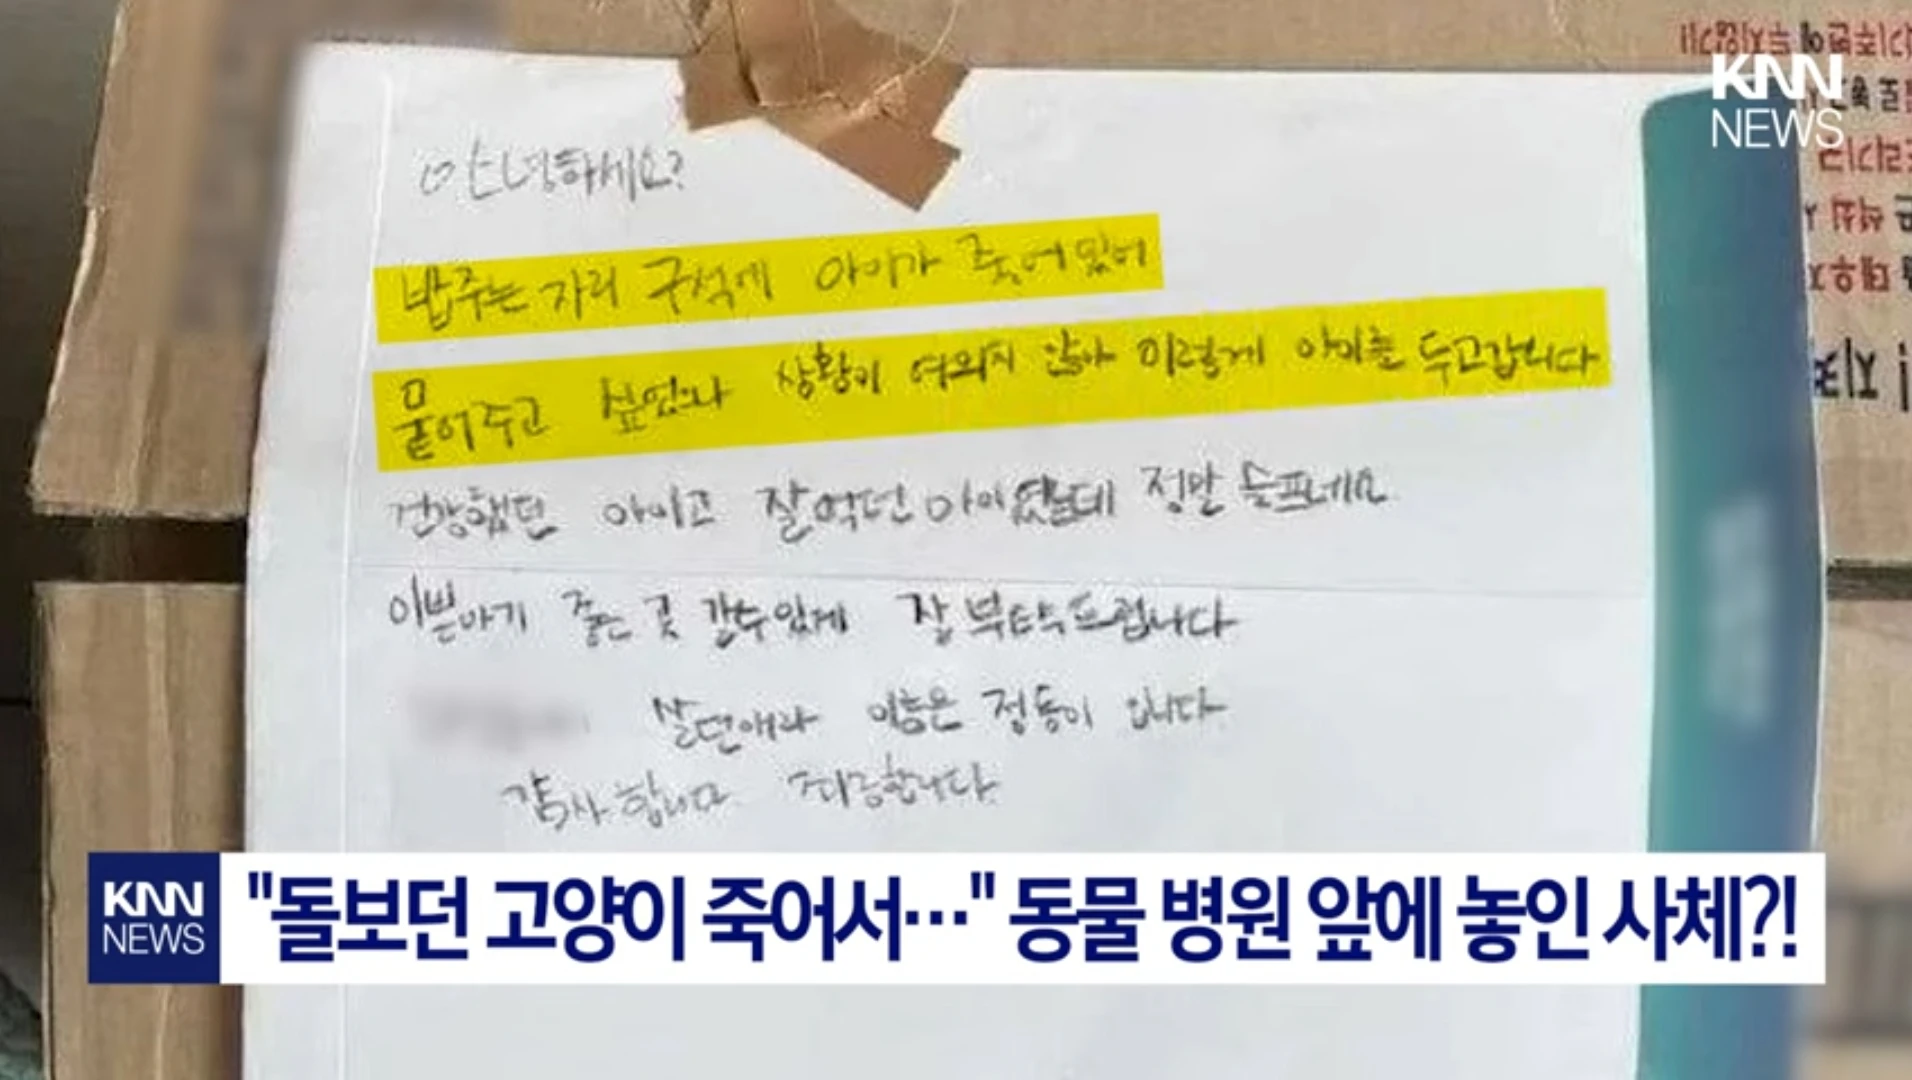 KNN
NEWS
안녕하세요?
밥주는 자리 구석에 아이가 죽어있어
묻어주고 싶었으나 상황이 여의치 않아 이렇게 아이를 두고갑니다
건강했던 아이고 잘먹던 아이였는데 정말 슬프네요
이쁜아기 좋은 곳 갈수있게 잘 부탁드립니다
살던애라 이름은 정동이 입니다
감사합니다 죄송합니다
KNN
NEWS
"돌보던 고양이 죽어서…" 동물 병원 앞에 놓인 사체?!